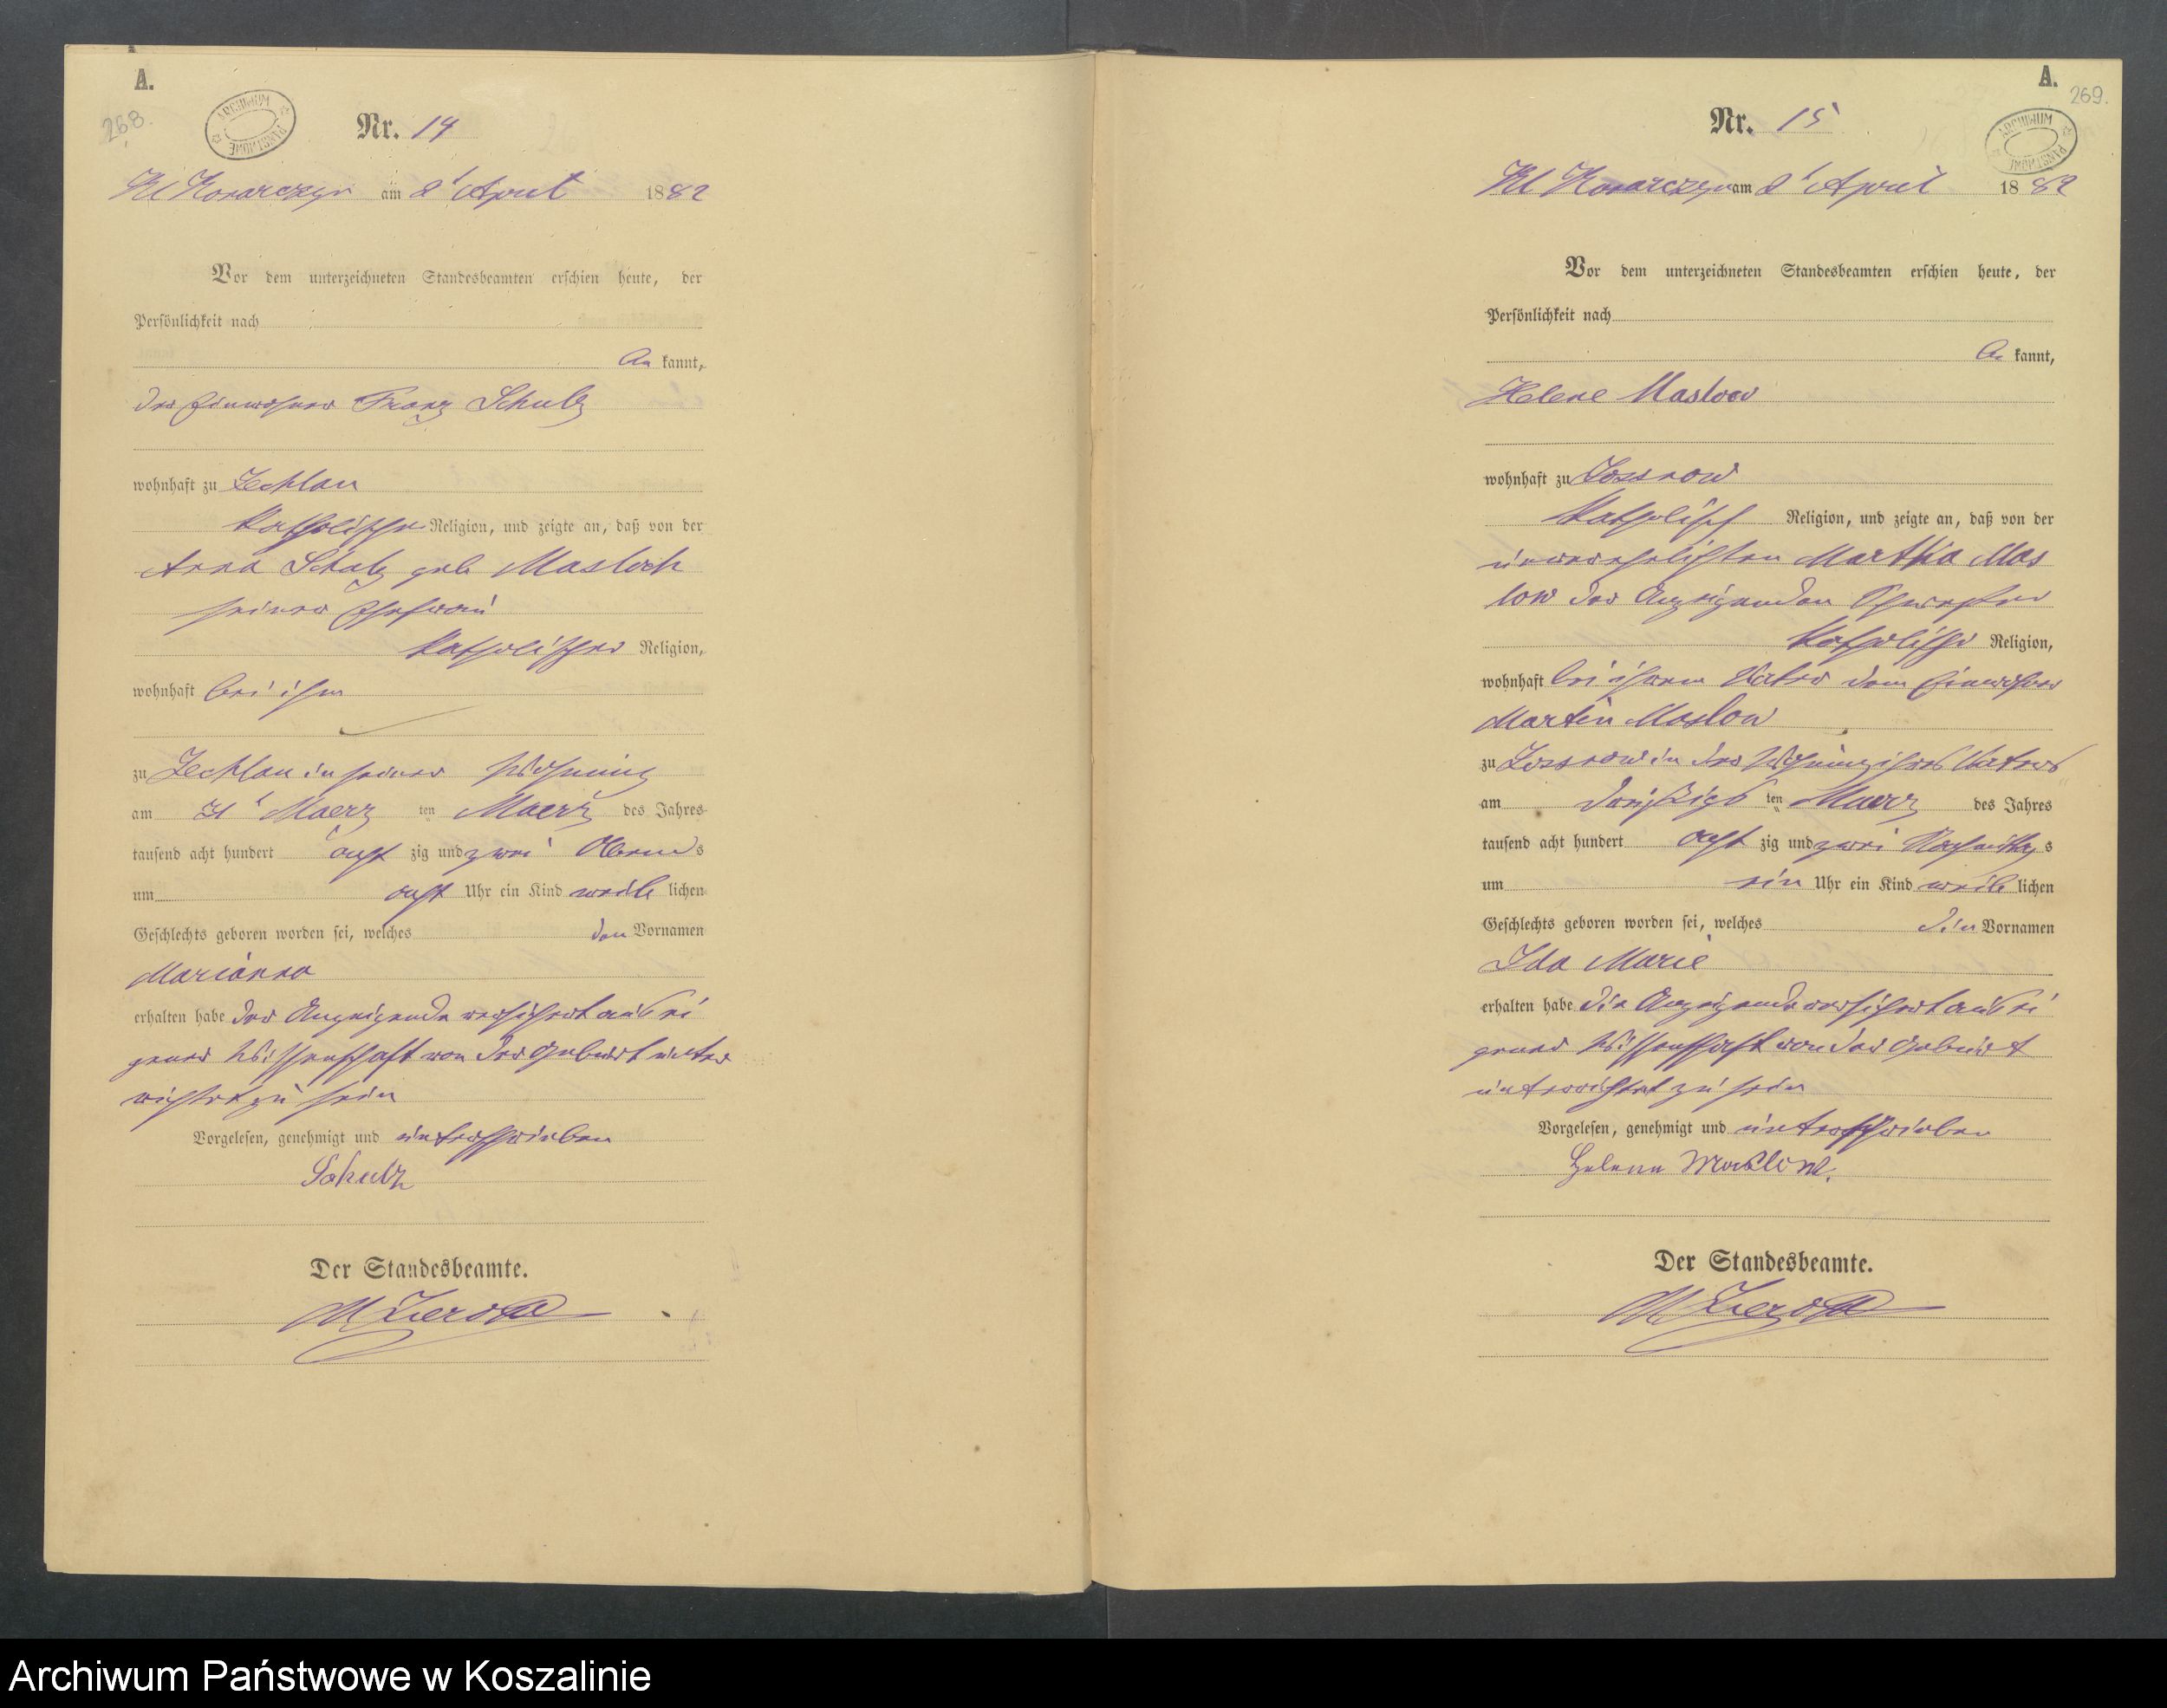 A.
268.
ARCHIWUM PAŃSTWOWE
Nr. 14
Kl Konarczyn am 2t April 1882
Vor dem unterzeichneten Standesbeamten erschien heute, der
Persönlichkeit nach
be kannt,
der Einwohner Franz Schulz
wohnhaft zu Zechlau
katholischer Religion, und zeigte an, daß von der
Anna Schulz geb Masloch
seiner Ehefrau
katholischer Religion,
wohnhaft bei ihm
zu Zechlau in seiner Wohnung
am 31t Maerz ten Maerz des Jahres
tausend acht hundert acht zig und zwei Abends
um acht Uhr ein Kind weib lichen
Geschlechts geboren worden sei, welches den Vornamen
Marianna
erhalten habe der Anzeigende versichert aus ei
gener Wissenschaft von der Geburt unter
richtet zu sein
Vorgelesen, genehmigt und unterschrieben
Schulz
Der Standesbeamte.
A.
269.
ARCHIWUM PAŃSTWOWE
Nr. 15
Kl Konarczyn am 2t April 1882
Vor dem unterzeichneten Standesbeamten erschien heute, der
Persönlichkeit nach
be kannt,
Helene Maslow
wohnhaft zu Zossnow
katholisch Religion, und zeigte an, daß von der
unverehelichten Martha Mas
low der Anzeigenden Schwester
katholischer Religion,
wohnhaft bei ihrem Vater dem Einwohner
Martin Maslow
zu Zossnow in der Wohnung ihres Vaters
am dreißigs ten Maerz des Jahres
tausend acht hundert acht zig und zwei Nachmittags
um ein Uhr ein Kind weib lichen
Geschlechts geboren worden sei, welches die Vornamen
Ida Marie
erhalten habe die Anzeigende versichert aus ei
gener Wissenschaft von der Geburt
unterrichtet zu sein
Vorgelesen, genehmigt und unterschrieben
Helene Maslow.
Der Standesbeamte.
Archiwum Państwowe w Koszalinie